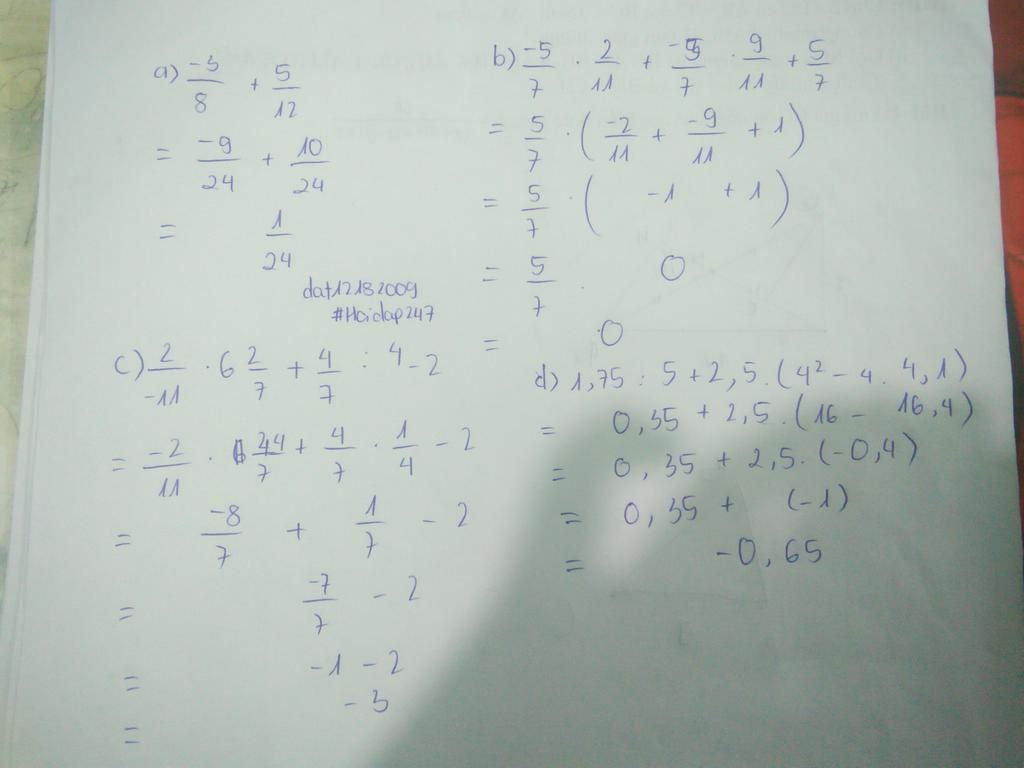 a) -3/8 + 5/12
= -9/24 + 10/24
= 1/24
dat12182009
#Hoidap247
b) -5/7 . 2/11 + -5/7 . 9/11 + 5/7
= 5/7 . ( -2/11 + -9/11 + 1 )
= 5/7 . ( -1 + 1 )
= 5/7 . 0
= 0
c) 2/-11 . 6 2/7 + 4/7 : 4 - 2
= -2/11 . 44/7 + 4/7 . 1/4 - 2
= -8/7 + 1/7 - 2
= -7/7 - 2
= -1 - 2
= -3
d) 1,75 : 5 + 2,5 . (4² - 4 . 4,1)
= 0,35 + 2,5 . (16 - 16,4)
= 0,35 + 2,5 . (-0,4)
= 0,35 + (-1)
= -0,65